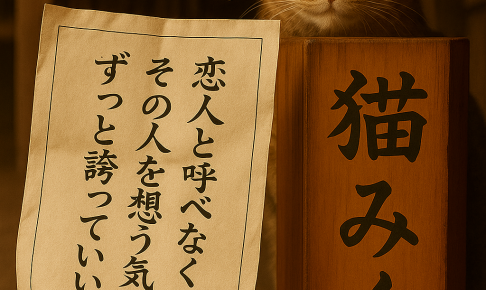 恋人と呼べなく
その人を想う気
ずっと誇っていい
猫みく